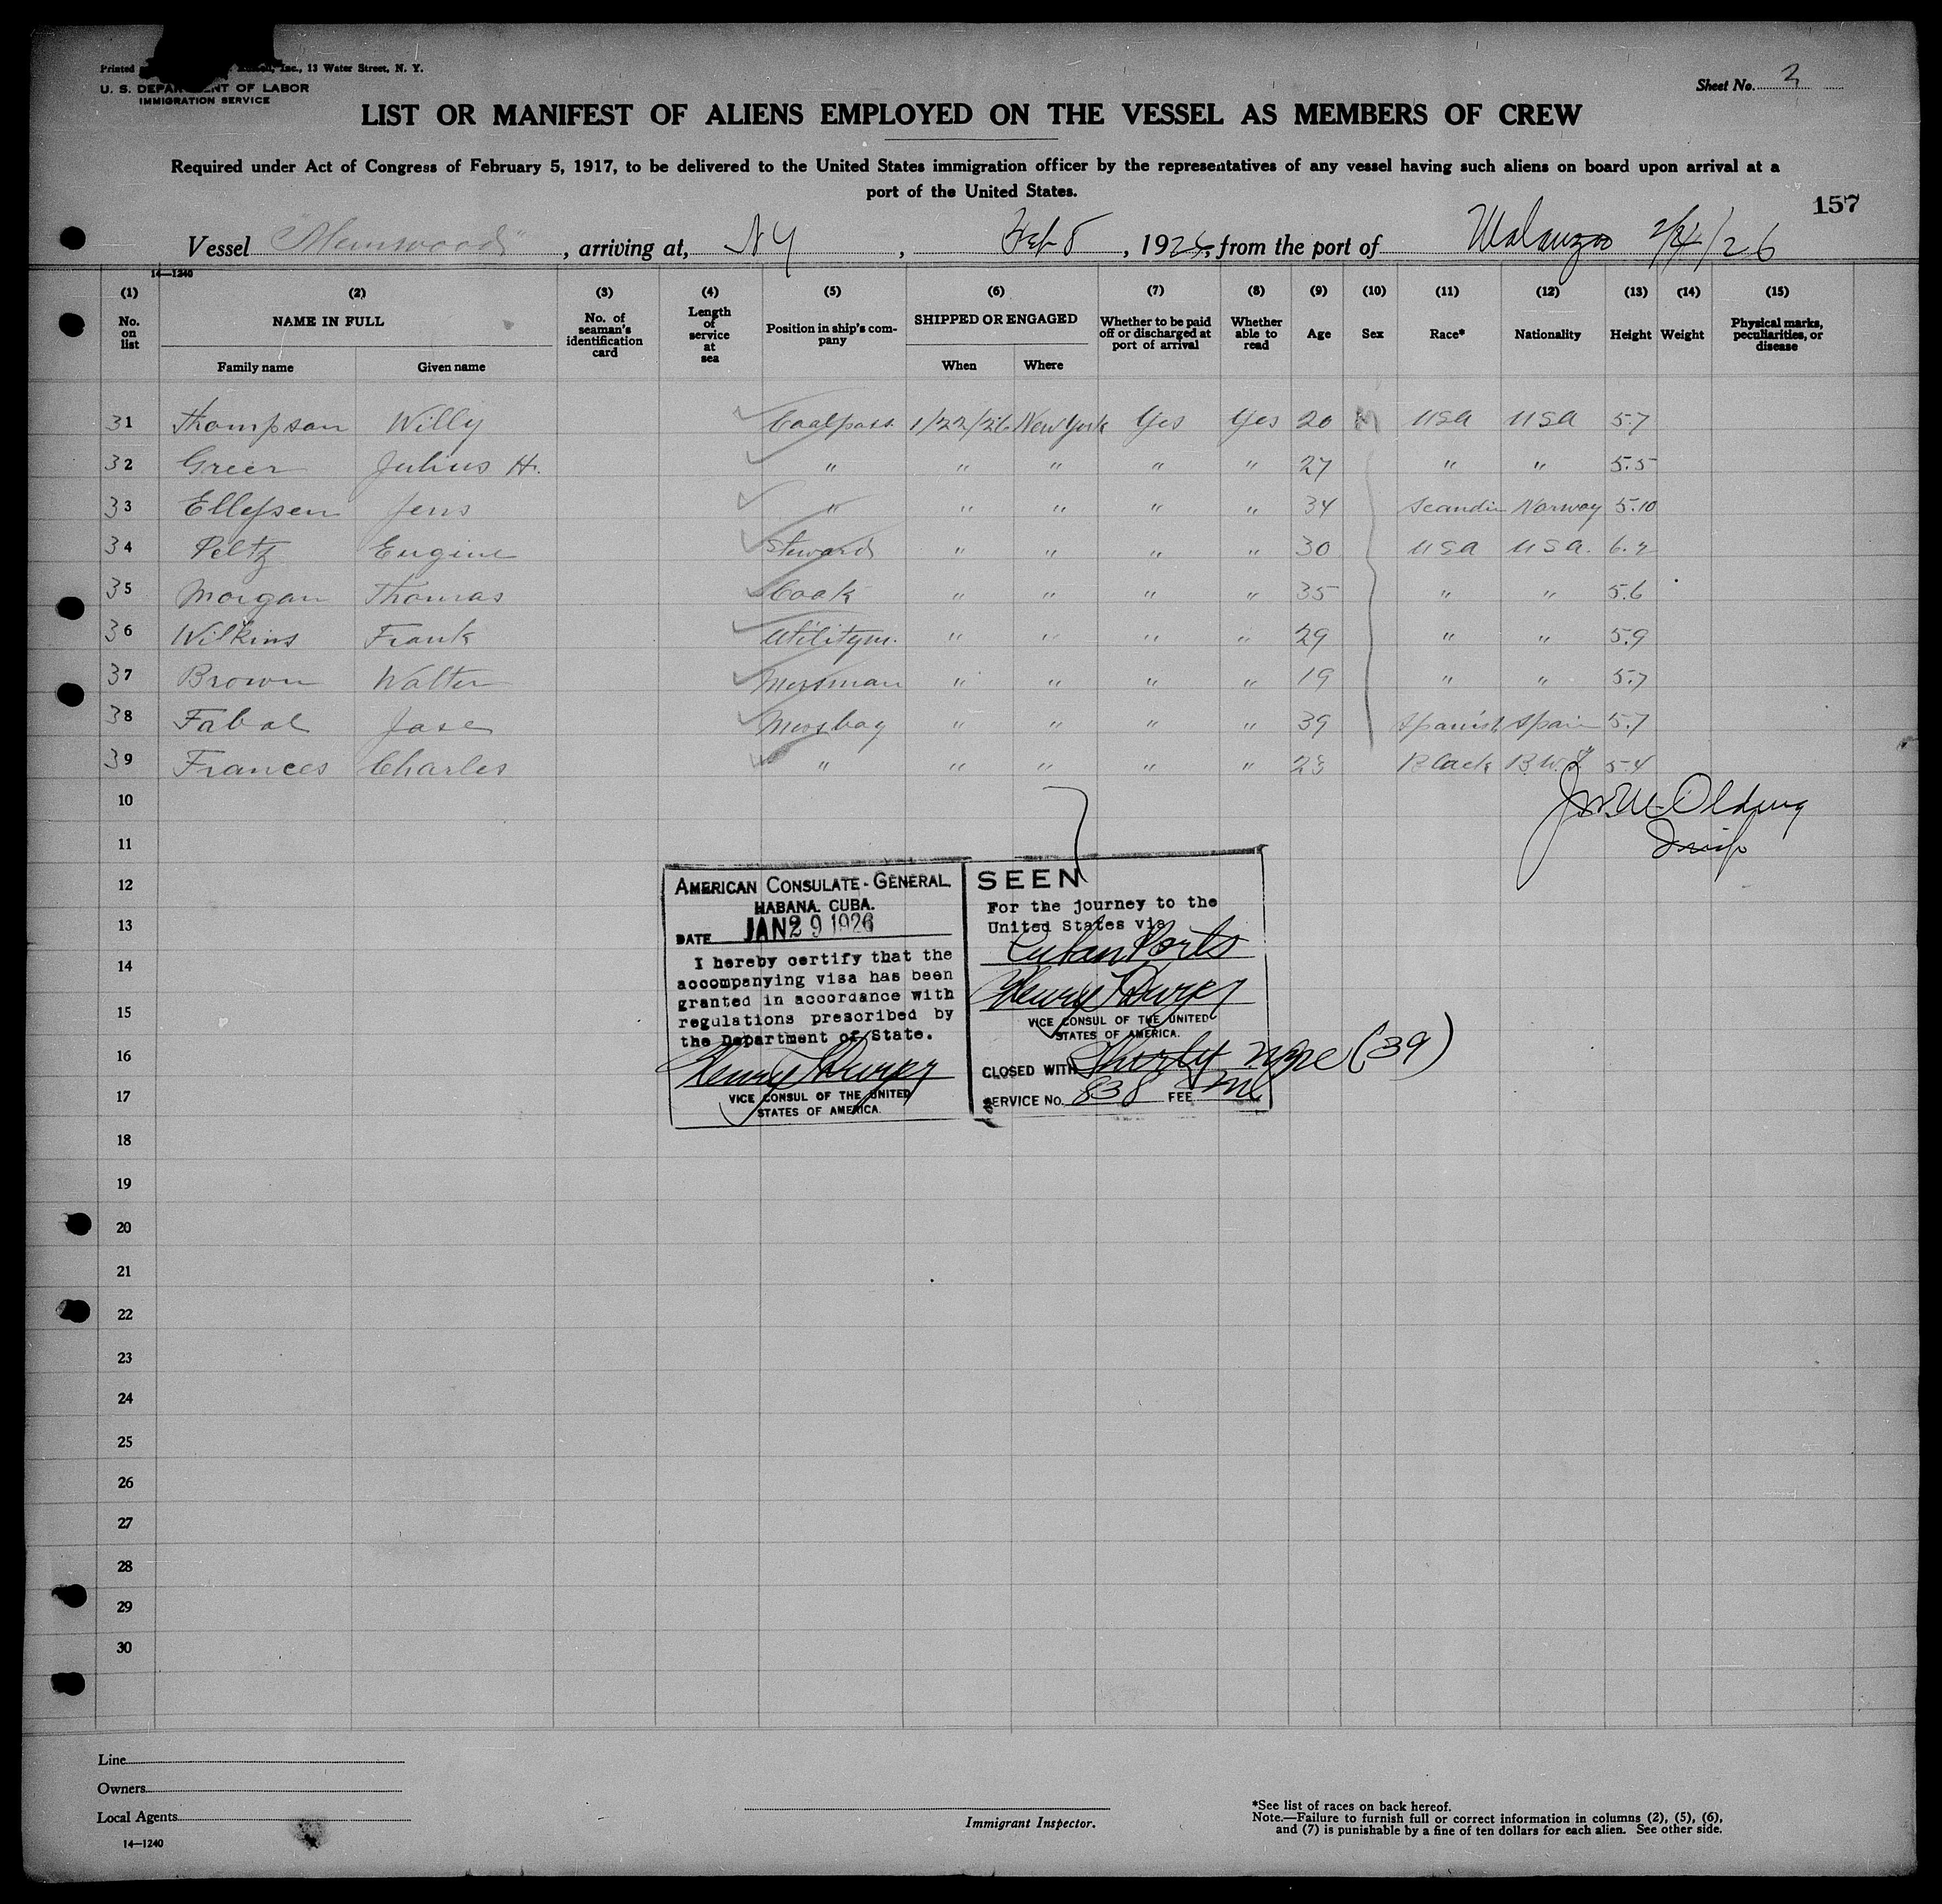 Printed Inc., 13 Water Street, N. Y.
U. S. DEPARTMENT OF LABOR
IMMIGRATION SERVICE
Sheet No.
LIST OR MANIFEST OF ALIENS EMPLOYED ON THE VESSEL AS MEMBERS OF CREW
Required under Act of Congress of February 5, 1917, to be delivered to the United States immigration officer by the representatives of any vessel having such aliens on board upon arrival at a
port of the United States.
157
Vessel , arriving at, NY , Feb 8 , 1926, from the port of 2/4/26
14—1240
(1) (2) (3) (4) (5) (6) (7) (8) (9) (10) (11) (12) (13) (14) (15)
No. on list NAME IN FULL Family name Given name No. of seaman's identification card Length of service at sea Position in ship's company SHIPPED OR ENGAGED When Where Whether to be paid off or discharged at port of arrival Whether able to read Age Sex Race* Nationality Height Weight Physical marks, peculiarities, or disease
31 Thompson Willy Coalpass 1/22/26 New York Yes Yes 20 M USA USA 5.7
32 Greer Julius H. " " " " " 27 " " 5.5
33 Ellefsen Jens " " " " " 34 Scandin Norway 5.10
34 Peltz Eugine Steward " " " " 30 USA USA. 6.2
35 Morgan Thomas Cook " " " " 35 " " 5.6
36 Wilkins Frank Utilitym. " " " " 29 " " 5.9
37 Brown Walter Messman " " " " 19 " " 5.7
38 Fabal Jose Messboy " " " " 39 Spanish Spain 5.7
39 Frances Charles " " " " " 23 Black B.W.I. 5.4
10
11
12
13
14
15
16
17
18
19
20
21
22
23
24
25
26
27
28
29
30
Insp
AMERICAN CONSULATE-GENERAL
HABANA, CUBA.
DATE JAN 29 1926
I hereby certify that the
accompanying visa has been
granted in accordance with
regulations prescribed by
the Department of State.
VICE CONSUL OF THE UNITED
STATES OF AMERICA.
SEEN
For the journey to the
United States via
Cuban Ports
VICE CONSUL OF THE UNITED
STATES OF AMERICA.
CLOSED WITH Thirty nine (39)
SERVICE No. 838 FEE
Line
Owners
Local Agents
14—1240
Immigrant Inspector.
*See list of races on back hereof.
Note.—Failure to furnish full or correct information in columns (2), (5), (6),
and (7) is punishable by a fine of ten dollars for each alien. See other side.